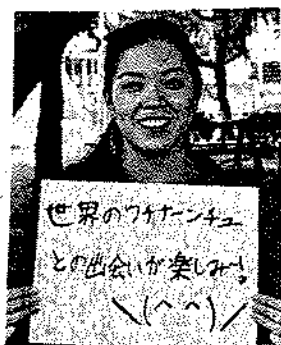 世界のウチナーンチュー
との出会いが楽しみ〜!
＼(^^)／